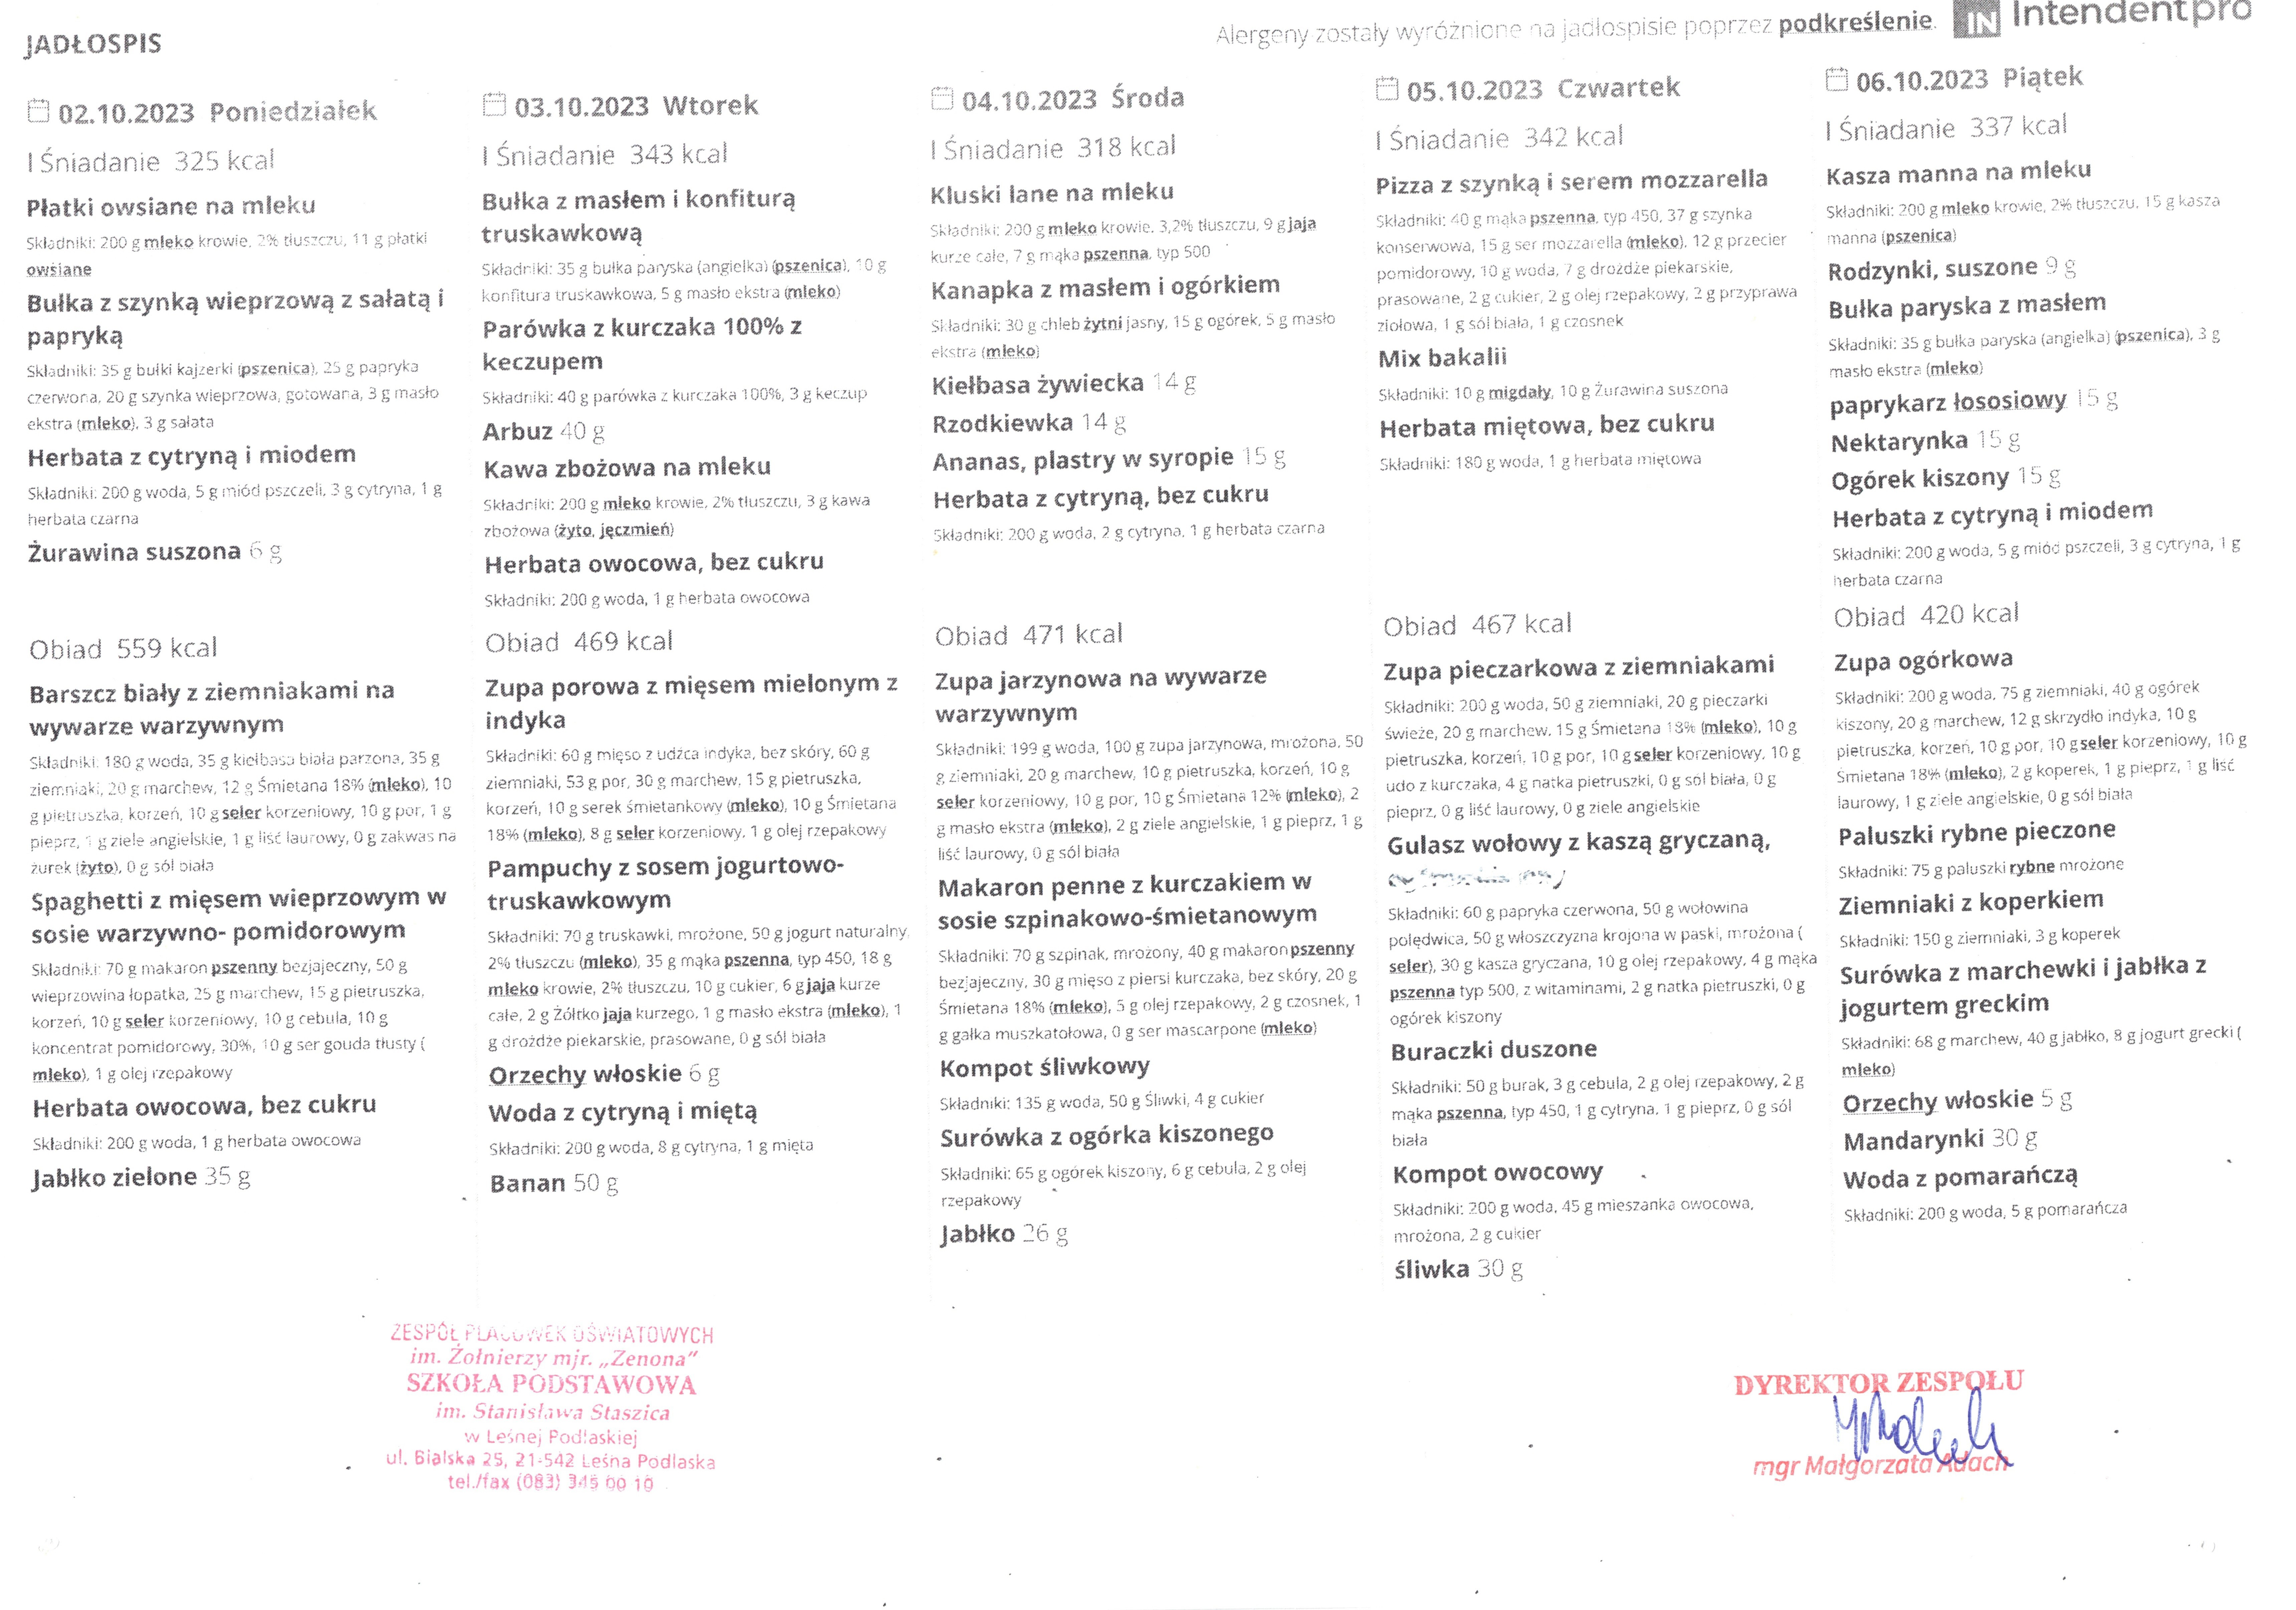 JADŁOSPIS
Alergeny zostały wyróżnione na jadłospisie poprzez podkreślenie.
IN Intendentpro
02.10.2023 Poniedziałek
I Śniadanie 325 kcal
Płatki owsiane na mleku
Składniki: 200 g mleko krowie, 2% tłuszczu, 11 g płatki
owsiane
Bułka z szynką wieprzową z sałatą i
papryką
Składniki: 35 g bułki kajzerki (pszenica), 25 g papryka
czerwona, 20 g szynka wieprzowa, gotowana, 3 g masło
ekstra (mleko), 3 g sałata
Herbata z cytryną i miodem
Składniki: 200 g woda, 5 g miód pszczeli, 3 g cytryna, 1 g
herbata czarna
Żurawina suszona 6 g
Obiad 559 kcal
Barszcz biały z ziemniakami na
wywarze warzywnym
Składniki: 180 g woda, 35 g kiełbasa biała parzona, 35 g
ziemniaki, 20 g marchew, 12 g Śmietana 18% (mleko), 10
g pietruszka, korzeń, 10 g seler korzeniowy, 10 g por, 1 g
pieprz, 1 g ziele angielskie, 1 g liść laurowy, 0 g zakwas na
żurek (żyto), 0 g sól biała
Spaghetti z mięsem wieprzowym w
sosie warzywno- pomidorowym
Składniki: 70 g makaron pszenny bezjajeczny, 50 g
wieprzowina łopatka, 25 g marchew, 15 g pietruszka,
korzeń, 10 g seler korzeniowy, 10 g cebula, 10 g
koncentrat pomidorowy, 30%, 10 g ser gouda tłusty (
mleko), 1 g olej rzepakowy
Herbata owocowa, bez cukru
Składniki: 200 g woda, 1 g herbata owocowa
Jabłko zielone 35 g
03.10.2023 Wtorek
I Śniadanie 343 kcal
Bułka z masłem i konfiturą
truskawkową
Składniki: 35 g bułka paryska (angielka) (pszenica), 10 g
konfitura truskawkowa, 5 g masło ekstra (mleko)
Parówka z kurczaka 100% z
keczupem
Składniki: 40 g parówka z kurczaka 100%, 3 g keczup
Arbuz 40 g
Kawa zbożowa na mleku
Składniki: 200 g mleko krowie, 2% tłuszczu, 3 g kawa
zbożowa (żyto, jęczmień)
Herbata owocowa, bez cukru
Składniki: 200 g woda, 1 g herbata owocowa
Obiad 469 kcal
Zupa porowa z mięsem mielonym z
indyka
Składniki: 60 g mięso z udźca indyka, bez skóry, 60 g
ziemniaki, 53 g por, 30 g marchew, 15 g pietruszka,
korzeń, 10 g serek śmietankowy (mleko), 10 g Śmietana
18% (mleko), 8 g seler korzeniowy, 1 g olej rzepakowy
Pampuchy z sosem jogurtowo-
truskawkowym
Składniki: 70 g truskawki, mrożone, 50 g jogurt naturalny,
2% tłuszczu (mleko), 35 g mąka pszenna, typ 450, 18 g
mleko krowie, 2% tłuszczu, 10 g cukier, 6 g jaja kurze
całe, 2 g Żółtko jaja kurzego, 1 g masło ekstra (mleko), 1
g drożdże piekarskie, prasowane, 0 g sól biała
Orzechy włoskie 6 g
Woda z cytryną i miętą
Składniki: 200 g woda, 8 g cytryna, 1 g mięta
Banan 50 g
04.10.2023 Środa
I Śniadanie 318 kcal
Kluski lane na mleku
Składniki: 200 g mleko krowie, 3,2% tłuszczu, 9 g jaja
kurze całe, 7 g mąka pszenna, typ 500
Kanapka z masłem i ogórkiem
Składniki: 30 g chleb żytni jasny, 15 g ogórek, 5 g masło
ekstra (mleko)
Kiełbasa żywiecka 14 g
Rzodkiewka 14 g
Ananas, plastry w syropie 15 g
Herbata z cytryną, bez cukru
Składniki: 200 g woda, 2 g cytryna, 1 g herbata czarna
Obiad 471 kcal
Zupa jarzynowa na wywarze
warzywnym
Składniki: 199 g woda, 100 g zupa jarzynowa, mrożona, 50
g ziemniaki, 20 g marchew, 10 g pietruszka, korzeń, 10 g
seler korzeniowy, 10 g por, 10 g Śmietana 12% (mleko), 2
g masło ekstra (mleko), 2 g ziele angielskie, 1 g pieprz, 1 g
liść laurowy, 0 g sól biała
Makaron penne z kurczakiem w
sosie szpinakowo-śmietanowym
Składniki: 70 g szpinak, mrożony, 40 g makaron pszenny
bezjajeczny, 30 g mięso z piersi kurczaka, bez skóry, 20 g
Śmietana 18% (mleko), 5 g olej rzepakowy, 2 g czosnek, 1
g gałka muszkatołowa, 0 g ser mascarpone (mleko)
Kompot śliwkowy
Składniki: 135 g woda, 50 g Śliwki, 4 g cukier
Surówka z ogórka kiszonego
Składniki: 65 g ogórek kiszony, 6 g cebula, 2 g olej
rzepakowy
Jabłko 26 g
05.10.2023 Czwartek
I Śniadanie 342 kcal
Pizza z szynką i serem mozzarella
Składniki: 40 g mąka pszenna, typ 450, 37 g szynka
konserwowa, 15 g ser mozzarella (mleko), 12 g przecier
pomidorowy, 10 g woda, 7 g drożdże piekarskie,
prasowane, 2 g cukier, 2 g olej rzepakowy, 2 g przyprawa
ziołowa, 1 g sól biała, 1 g czosnek
Mix bakalii
Składniki: 10 g migdały, 10 g Żurawina suszona
Herbata miętowa, bez cukru
Składniki: 180 g woda, 1 g herbata miętowa
Obiad 467 kcal
Zupa pieczarkowa z ziemniakami
Składniki: 200 g woda, 50 g ziemniaki, 20 g pieczarki
świeże, 20 g marchew, 15 g Śmietana 18% (mleko), 10 g
pietruszka, korzeń, 10 g por, 10 g seler korzeniowy, 10 g
udo z kurczaka, 4 g natka pietruszki, 0 g sól biała, 0 g
pieprz, 0 g liść laurowy, 0 g ziele angielskie
Gulasz wołowy z kaszą gryczaną,
Składniki: 60 g papryka czerwona, 50 g wołowina
polędwica, 50 g włoszczyzna krojona w paski, mrożona (
seler), 30 g kasza gryczana, 10 g olej rzepakowy, 4 g mąka
pszenna typ 500, z witaminami, 2 g natka pietruszki, 0 g
ogórek kiszony
Buraczki duszone
Składniki: 50 g burak, 3 g cebula, 2 g olej rzepakowy, 2 g
mąka pszenna, typ 450, 1 g cytryna, 1 g pieprz, 0 g sól
biała
Kompot owocowy
Składniki: 200 g woda, 45 g mieszanka owocowa,
mrożona, 2 g cukier
śliwka 30 g
06.10.2023 Piątek
I Śniadanie 337 kcal
Kasza manna na mleku
Składniki: 200 g mleko krowie, 2% tłuszczu, 15 g kasza
manna (pszenica)
Rodzynki, suszone 9 g
Bułka paryska z masłem
Składniki: 35 g bułka paryska (angielka) (pszenica), 3 g
masło ekstra (mleko)
paprykarz łososiowy 15 g
Nektarynka 15 g
Ogórek kiszony 15 g
Herbata z cytryną i miodem
Składniki: 200 g woda, 5 g miód pszczeli, 3 g cytryna, 1 g
herbata czarna
Obiad 420 kcal
Zupa ogórkowa
Składniki: 200 g woda, 75 g ziemniaki, 40 g ogórek
kiszony, 20 g marchew, 12 g skrzydło indyka, 10 g
pietruszka, korzeń, 10 g por, 10 g seler korzeniowy, 10 g
Śmietana 18% (mleko), 2 g koperek, 1 g pieprz, 1 g liść
laurowy, 1 g ziele angielskie, 0 g sól biała
Paluszki rybne pieczone
Składniki: 75 g paluszki rybne mrożone
Ziemniaki z koperkiem
Składniki: 150 g ziemniaki, 3 g koperek
Surówka z marchewki i jabłka z
jogurtem greckim
Składniki: 68 g marchew, 40 g jabłko, 8 g jogurt grecki (
mleko)
Orzechy włoskie 5 g
Mandarynki 30 g
Woda z pomarańczą
Składniki: 200 g woda, 5 g pomarańcza
ZESPÓŁ PLACÓWEK OŚWIATOWYCH
im. Żołnierzy mjr. „Zenona”
SZKOŁA PODSTAWOWA
im. Stanisława Staszica
w Leśnej Podlaskiej
ul. Bialska 25, 21-542 Leśna Podlaska
tel./fax (083) 345 00 10
DYREKTOR ZESPOŁU
mgr Małgorzata Adach